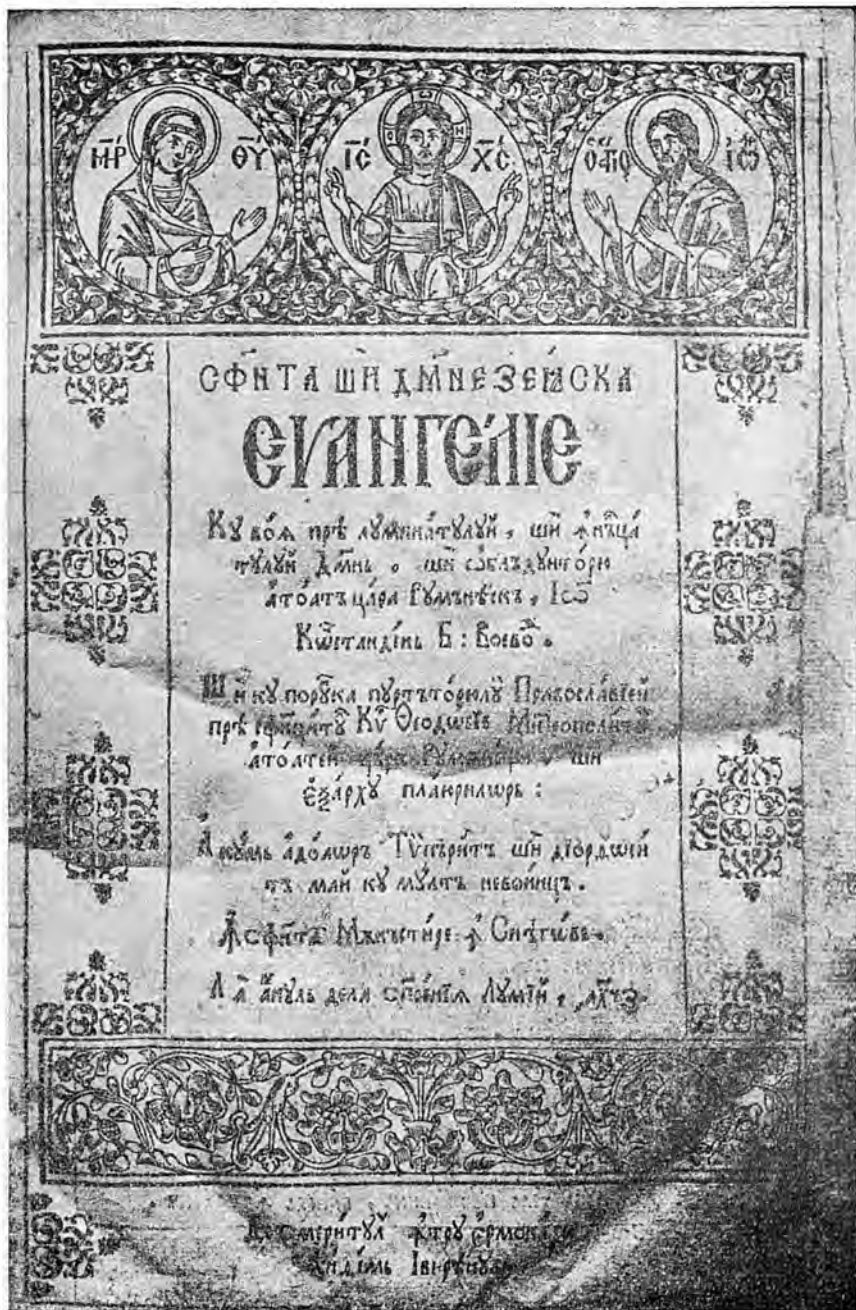 М҃Р Ѳ҃У І҃С Х҃С Ѻ АГІѺС ІѠ
СФН҃ТА ШИ ДМ҃НЕЗЕѦСКА
ЕѴАНГЕЛІЕ
Ку воѧ прѣ луминатулуй, ши ꙟнълца
тулуй Домнь, ши ѡблъдуиторю
атоатъ цара Румънѣскъ, Іѡ
Кѡстандінь Б: Воевод.
Ши ку порунка пуртъторюлу Православіей
прѣ сфинцитꙋ Кѵ Ѳеодосіе Митрополитꙋ
атоатей ши
еѯархꙋ плаюрилѡрь:
Акумь адоаѡръ Тѵпърит ши діорѳосит
тъ май ку мултъ невоинцъ.
ꙟ сфнта Мънъстире ꙟ Снѣгѡвь.
Ла анꙋль дела спсеніѧ Лумій, ҂ахчз
ꙟтру Ермонахи
Анѳимь Івирѣнꙋл